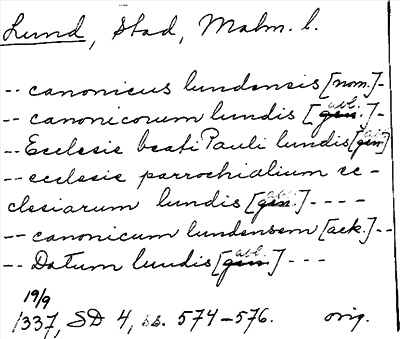 Lund, Stad, Malm. l.
-- canonicus lundensis [nom.]-
-- canonicorum lundis [gen. abl.]-
-- Ecclesie beati Pauli lundis [gen abl.]
-- ecclesie parrochialium ec-
clesiarum lundis [gen. abl.] ----
-- canonicum lundensem [ack.]--
-- Datum lundis [gen abl.] ---
19/9
1337, SD 4, ss. 574-576. orig.